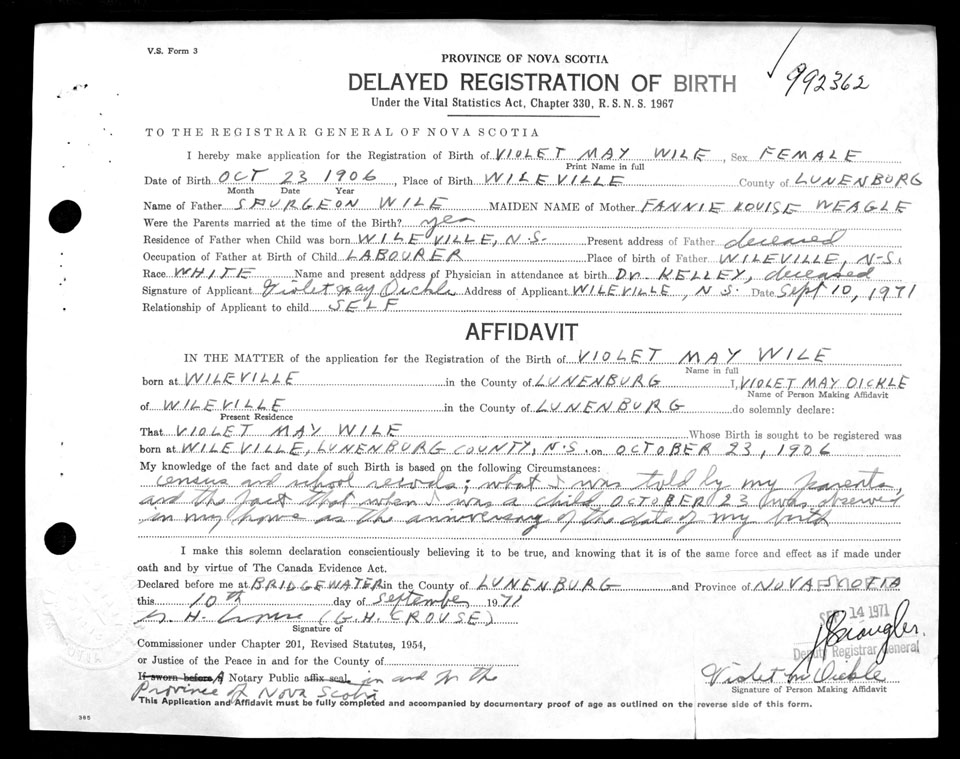 V.S. Form 3
992362
PROVINCE OF NOVA SCOTIA
DELAYED REGISTRATION OF BIRTH
Under the Vital Statistics Act, Chapter 330, R.S.N.S. 1967
TO THE REGISTRAR GENERAL OF NOVA SCOTIA
I hereby make application for the Registration of Birth of VIOLET MAY WILE, Sex FEMALE
Print Name in full
Date of Birth OCT 23 1906, Place of Birth WILEVILLE County of LUNENBURG
Month Date Year
Name of Father SPURGEON WILE MAIDEN NAME of Mother FANNIE LOUISE WEAGLE
Were the Parents married at the time of the Birth? yes
Residence of Father when Child was born WILEVILLE, N.S. Present address of Father deceased
Occupation of Father at Birth of Child LABOURER Place of birth of Father WILEVILLE, N.S.
Race WHITE Name and present address of Physician in attendance at birth Dr. KELLEY, deceased
Signature of Applicant Violet May Oickle Address of Applicant WILEVILLE, N.S. Date Sept 10, 1971
Relationship of Applicant to child SELF
AFFIDAVIT
IN THE MATTER of the application for the Registration of the Birth of VIOLET MAY WILE
Name in full
born at WILEVILLE in the County of LUNENBURG I, VIOLET MAY OICKLE
Name of Person Making Affidavit
of WILEVILLE in the County of LUNENBURG do solemnly declare:
Present Residence
That VIOLET MAY WILE Whose Birth is sought to be registered was
born at WILEVILLE, LUNENBURG COUNTY, N.S. on OCTOBER 23, 1906
My knowledge of the fact and date of such Birth is based on the following Circumstances:
census and school records; what I was told by my parents,
and the fact that when I was a child OCTOBER 23 was observed
in my home as the anniversary of the date of my birth
I make this solemn declaration conscientiously believing it to be true, and knowing that it is of the same force and effect as if made under
oath and by virtue of The Canada Evidence Act.
Declared before me at BRIDGEWATER in the County of LUNENBURG and Province of NOVA SCOTIA
this 10th day of September 1971
G. H. Crouse (G.H. CROUSE)
Signature of
SEP 14 1971
Commissioner under Chapter 201, Revised Statutes, 1954,
Deputy Registrar General
or Justice of the Peace in and for the County of
If sworn before A Notary Public affix seal. in and for the
Violet M Oickle
Province of Nova Scotia
Signature of Person Making Affidavit
This Application and Affidavit must be fully completed and accompanied by documentary proof of age as outlined on the reverse side of this form.
385